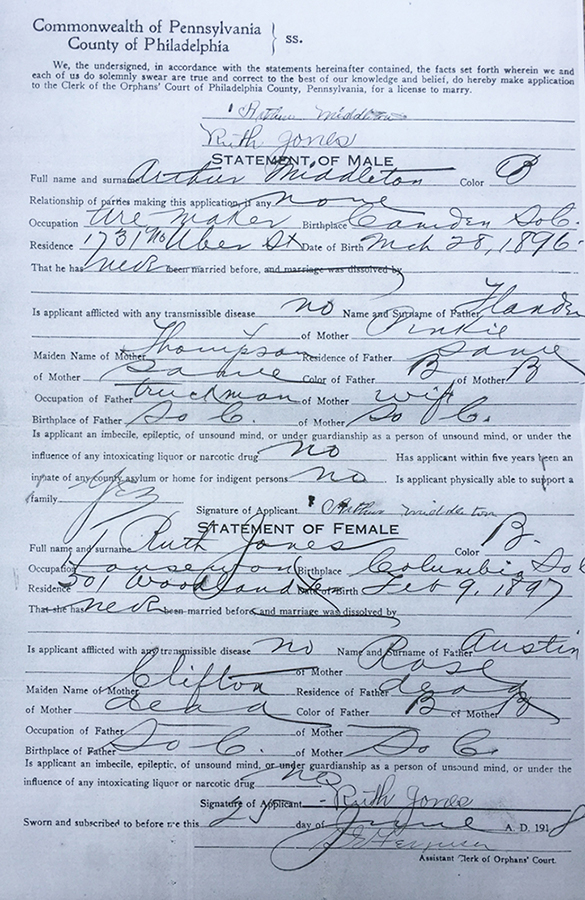 Commonwealth of Pennsylvania
County of Philadelphia } ss.
We, the undersigned, in accordance with the statements hereinafter contained, the facts set forth wherein we and
each of us do solemnly swear are true and correct to the best of our knowledge and belief, do hereby make application
to the Clerk of the Orphans' Court of Philadelphia County, Pennsylvania, for a license to marry.
Arthur Middleton
Ruth Jones
STATEMENT OF MALE
Full name and surname Arthur Middleton Color B
Relationship of parties making this application, if any none
Occupation Wire maker Birthplace Camden So C.
Residence 1731 No Uber St Date of Birth Mch 28, 1896
That he has never been married before, and marriage was dissolved by
Is applicant afflicted with any transmissible disease no Name and Surname of Father Flander
of Mother Pinkie
Maiden Name of Mother Thompson Residence of Father same
of Mother same Color of Father B of Mother B
Occupation of Father truckman of Mother wife
Birthplace of Father So C. of Mother So C.
Is applicant an imbecile, epileptic, of unsound mind, or under guardianship as a person of unsound mind, or under the
influence of any intoxicating liquor or narcotic drug no Has applicant within five years been an
inmate of any county asylum or home for indigent persons no Is applicant physically able to support a
family yes
Signature of Applicant Arthur middleton
STATEMENT OF FEMALE
Full name and surname Ruth Jones Color B.
Occupation Birthplace Columbia So C
Residence 301 Woodland Date of Birth Feb 9, 1897
That she has never been married before, and marriage was dissolved by
Is applicant afflicted with any transmissible disease no Name and Surname of Father Austin
of Mother Rose
Maiden Name of Mother Clifton Residence of Father dead
of Mother dead Color of Father B of Mother B
Occupation of Father of Mother
Birthplace of Father So C. of Mother So C.
Is applicant an imbecile, epileptic, of unsound mind, or under guardianship as a person of unsound mind, or under the
influence of any intoxicating liquor or narcotic drug no
Signature of Applicant Ruth Jones
Sworn and subscribed to before me this 25 day of June A. D. 1918
Assistant Clerk of Orphans' Court.